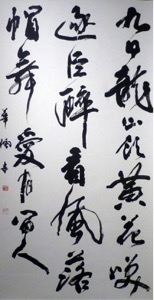 九日龍山飲黄花笑
逐臣醉看風落
帽舞愛月留人